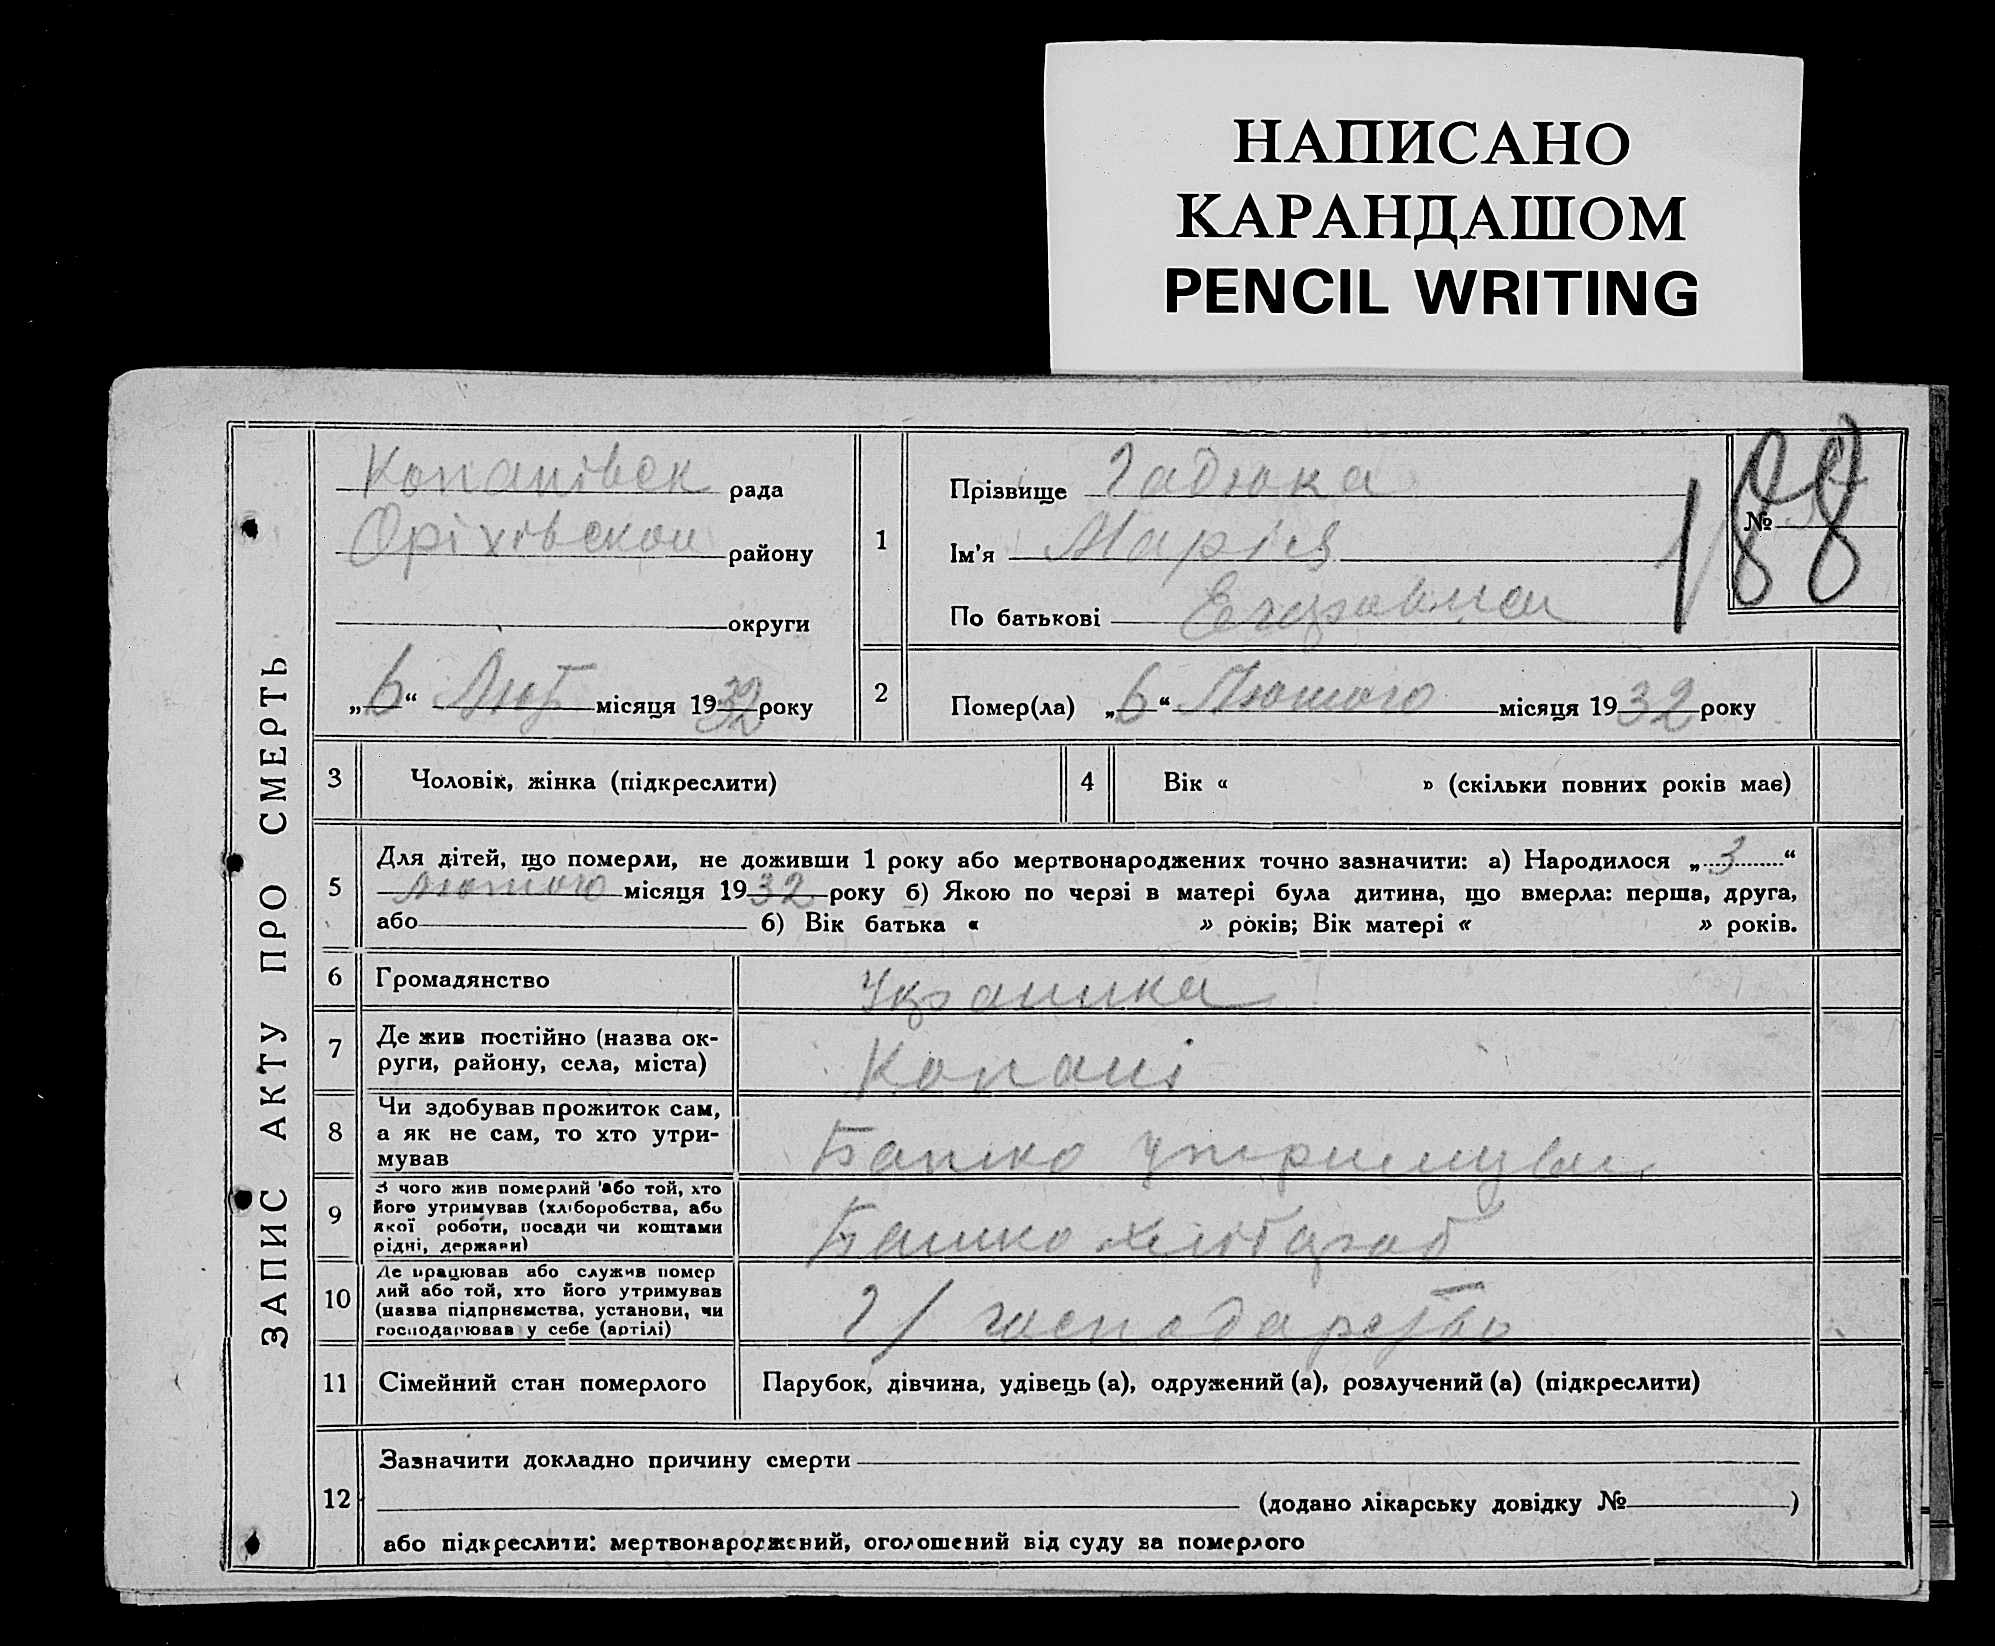 НАПИСАНО
КАРАНДАШОМ
PENCIL WRITING
ЗАПИС АКТУ ПРО СМЕРТЬ
Копанівск рада
Оріхівскои району
округи
„6“ Лют місяця 1932 року
1
Прізвище Гадюка
Ім'я Марія
По батькові
№
188
2
Помер(ла) „6“ Лютого місяця 1932 року
3 Чоловік, жінка (підкреслити)
4 Вік « » (скільки повних років має)
5
Для дітей, що померли, не доживши 1 року або мертвонароджених точно зазначити: а) Народилося „3“
Лютого місяця 1932 року б) Якою по черзі в матері була дитина, що вмерла: перша, друга,
або б) Вік батька « » років; Вік матері « » років.
6 Громадянство Украинка
7
Де жив постійно (назва ок-
руги, району, села, міста)
Копані
8
Чи здобував прожиток сам,
а як не сам, то хто утри-
мував
Батько утримував
9
З чого жив померлий або той, хто
його утримував (хліборобства, або
якої роботи, посади чи коштами
рідні, держави)
Батько хлібароб
10
Де працював або служив помер
лий або той, хто його утримував
(назва підприємства, установи, чи
господарював у себе (артілі)
г/ господарство
11 Сімейний стан померлого Парубок, дівчина, удівець (а), одружений (а), розлучений (а) (підкреслити)
12
Зазначити докладно причину смерти
(додано лікарську довідку № )
або підкреслити: мертвонароджений, оголошений від суду за померлого